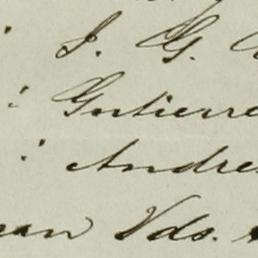 J. G.
: Gutierre
: Andre
Vds.